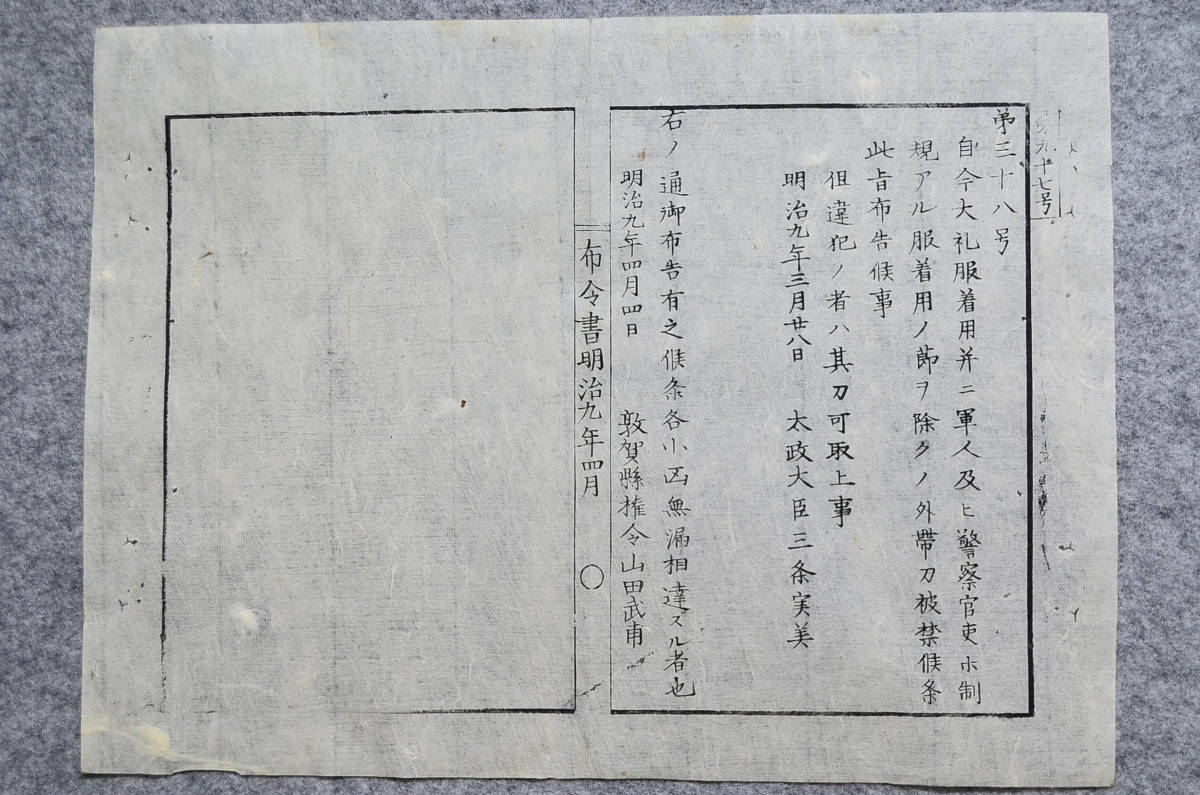 第九十七号
第三十八号
自今大礼服着用并ニ軍人及ヒ警察官吏ホ制
規アル服着用ノ節ヲ除クノ外帶刀被禁候条
此旨布告候事
但違犯ノ者ハ其刀可取上事
明治九年三月廿八日 太政大臣三条実美
右ノ通御布告有之候条各小区無漏相達スル者也
明治九年四月四日 敦賀縣権令山田武甫
布令書明治九年四月 〇